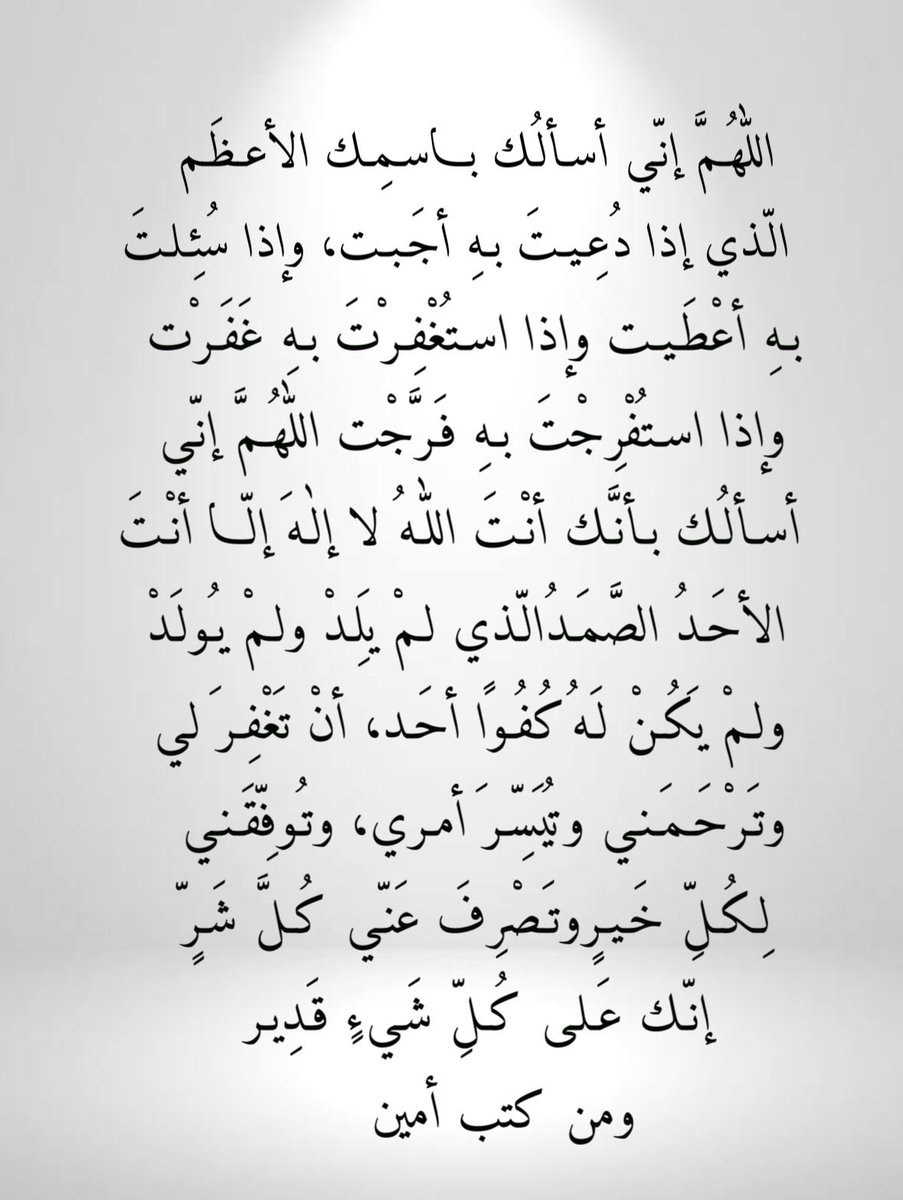 اللّٰهُمَّ إنّي أسألُك بـاسمِك الأعـظَـم
الّذي إذا دُعِيتَ بهِ أجَبت، وإذا سُئِلتَ
بهِ أعْطَيت وإذا استُغْفِرْتَ بهِ غَفَرْت
وإذا استُفْرِجْتَ بهِ فَرَّجْت اللّٰهُمَّ إنّي
أسألُك بأنَّك أنْتَ اللّٰهُ لا إلٰهَ إلّـا أنْتَ
الأحَدُ الصَّمَدُالّذي لمْ يَلِدْ ولمْ يُولَدْ
ولمْ يَكُنْ لَهُ كُفُوًا أحَد، أنْ تَغْفِرَ لي
وتَرْحَمَني وتُيَسِّرَ أمري، وتُوفِّقَني
لِكُلِّ خَيرٍوتَصْرِفَ عَنّي كُلَّ شَرٍّ
إنّك عَلى كُلِّ شَيءٍ قَدِير
ومن كتب أمين